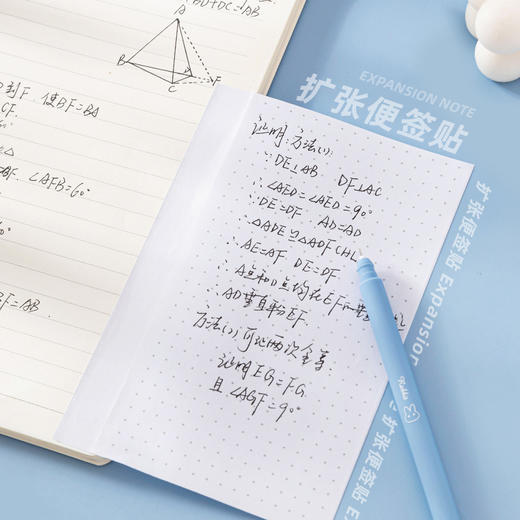 BD+DC=AB
A
B
D
C
F
到F 使BF=BA
CF.
60°
AF. ∠AFB=60°
60°
BF=AB
EXPANSION NOTE
扩张便签贴
证明:方法(1):
∵DE⊥AB DF⊥AC
∴∠AED=∠AED=90°
∵DE=DF AD=AD
∴△ADE≌△ADF(HL
∴AE=AF DE=DF
∴A点和D点均在EF的垂
AD垂直平分EF.
方法(2)可证两次全等.
证明EG=FG
且∠AGF=90°
扩张便签贴 Expansion
扩张便签贴 E